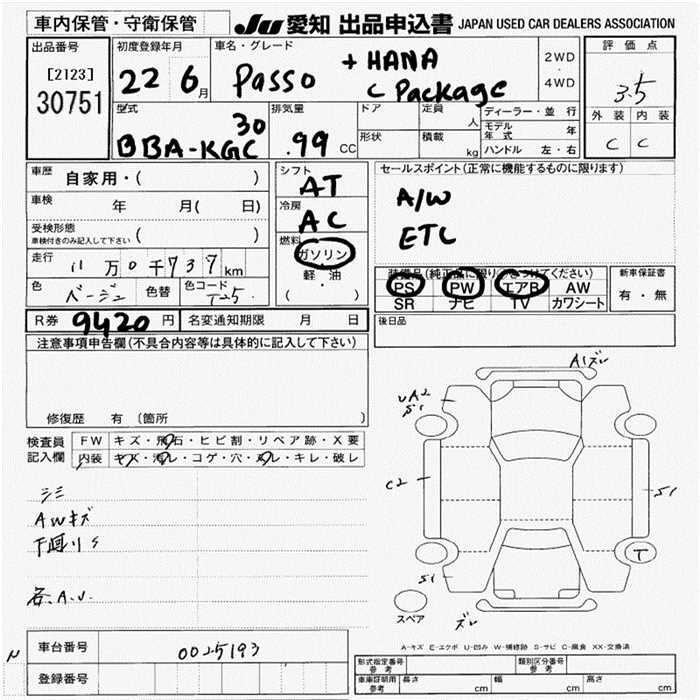 車内保管・守衛保管
JU 愛知 出品申込書 JAPAN USED CAR DEALERS ASSOCIATION
出品番号
[2123]
30751
初度登録年月
22 6月
車名・グレード
Passo + HANA
C Package
2WD
・
4WD
評価点
3.5
外装 内装
C C
型式
30
BBA-KGC
排気量
.99 CC
ドア
形状
定員
人
積載
kg
ディーラー・並行
モデル年式 年
ハンドル 左・右
車歴 自家用・( )
車検 年 月( 日)
受検形態
車検付きのみ記入して下さい ( )
走行 11万0千737km
色 ベージュ 色替 色コード T25
シフト
AT
冷房
AC
燃料
ガソリン
軽・油
( )
セールスポイント(正常に機能するものに限ります)
A/W
ETC
装備品(純正品に限り○をつけてください)
PS PW エアB AW
SR ナビ TV カワシート
新車保証書
有・無
R券 9420円 名変通知期限 月 日
後日品
注意事項申告欄(不具合内容等は具体的に記入して下さい)
修復歴 有 〔箇所 〕
検査員
記入欄
FW キズ・飛石・ヒビ割・リペア跡・X要
内装 キズ・汚レ・コゲ・穴・スレ・キレ・破レ
シミ
AWキズ
下廻りS
各A.U.
A1ズレ
UA2
S1
C2
S1
S1
T
スペア
ズレ
A-キズ E-エクボ U-凹み W-補修跡 S-サビ C-腐食 XX-交換済
N
車台番号 0025193
登録番号
形式指定番号
参考
類別区分番号
参考
車庫証明用
参考
長さ cm 幅 cm 高さ cm